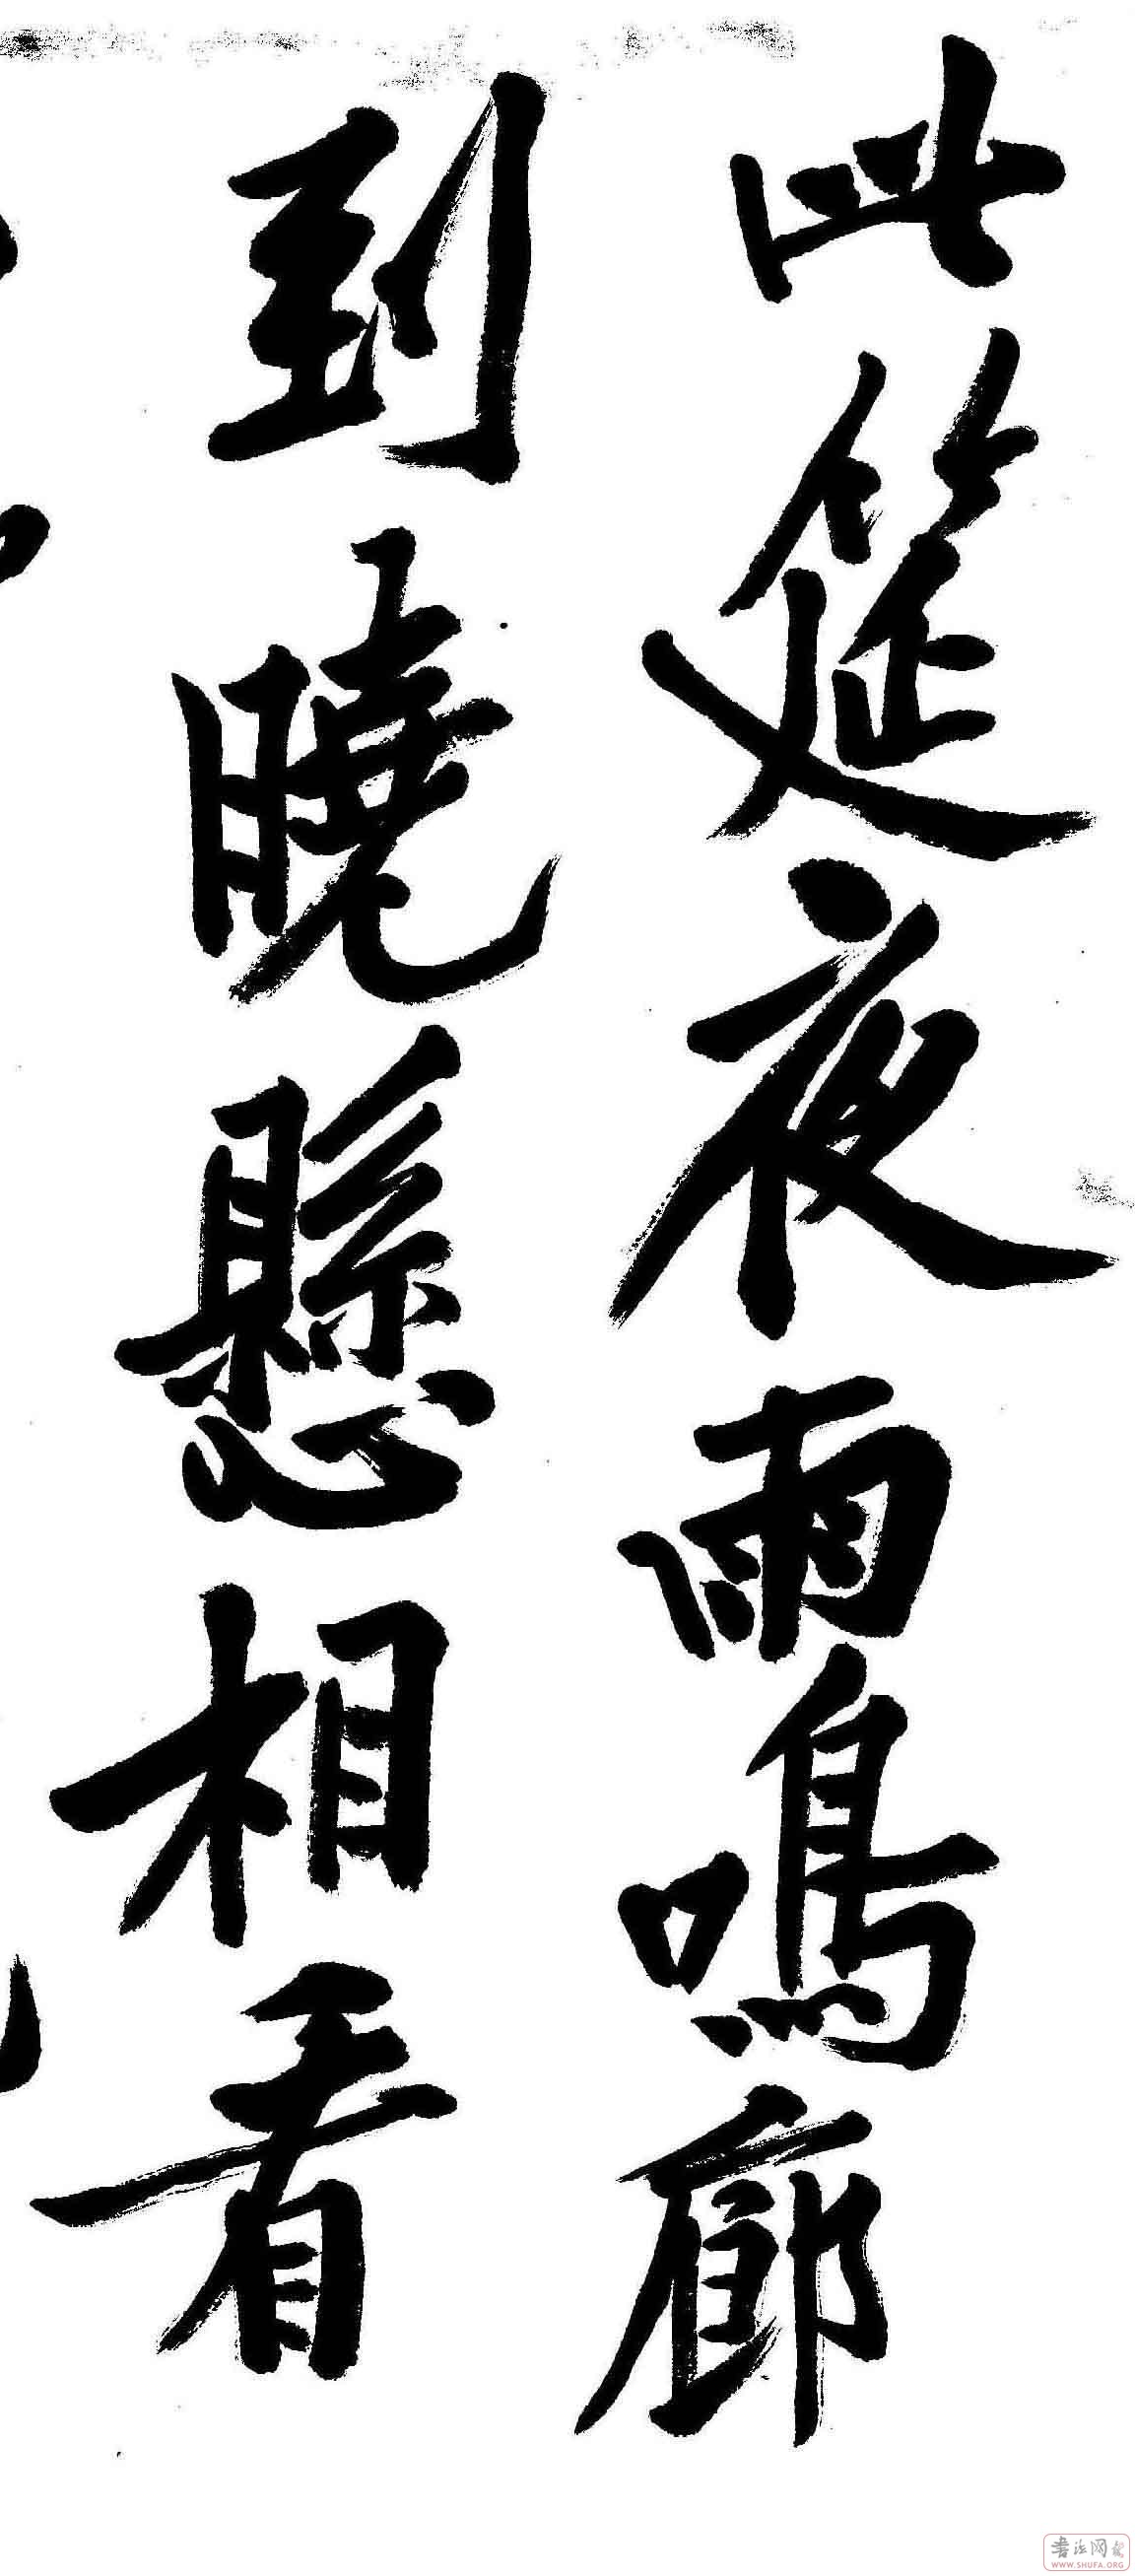 此筵夜雨鳴廊
到曉懸相看
書法网
WWW.SHUFA.ORG